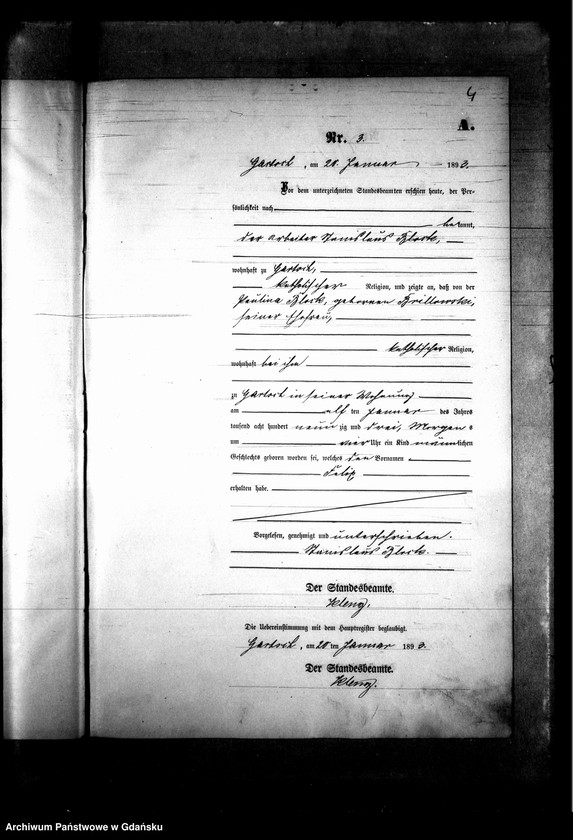 4
A.
Nr. 3.
am 20. Januar 1893.
Vor dem unterzeichneten Standesbeamten erschien heute, der Per-
sönlichkeit nach
bekannt,
der Arbeiter Stanislaus Block,
wohnhaft zu
katholischer Religion, und zeigte an, daß von der
Paulina Block, geborenen Brillowski,
seiner Ehefrau,
katholischer Religion,
wohnhaft bei ihm
zu in seiner Wohnung
am elf ten Januar des Jahres
tausend acht hundert neun zig und drei, Morgens
um vier Uhr ein Kind männlichen
Geschlechts geboren worden sei, welches den Vornamen
Felix
erhalten habe.
Vorgelesen, genehmigt und unterschrieben.
Stanislaus Block.
Der Standesbeamte.
Die Uebereinstimmung mit dem Hauptregister beglaubigt.
am 20 ten Januar 1893.
Der Standesbeamte.
Archiwum Państwowe w Gdańsku